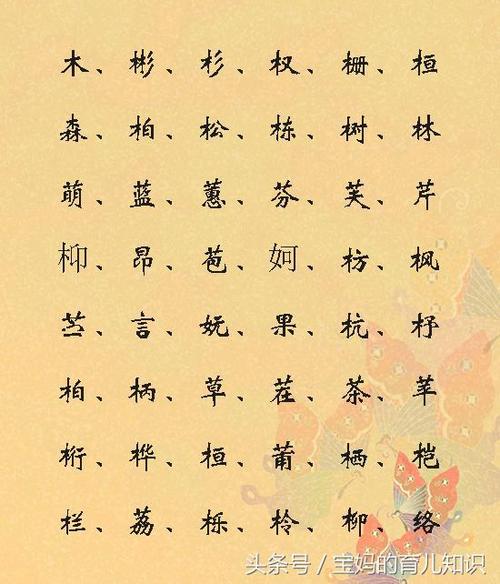 木、彬、杉、权、栅、桓
森、柏、松、栋、树、林
萌、蓝、蕙、芬、芙、芹
枊、昂、苞、妸、枋、枫
、言、妩、果、杭、杼
柏、柄、草、茬、茶、苹
桁、桦、桓、莆、栖、桤
栏、荔、栎、柃、柳、络
头条号/宝妈的育儿知识